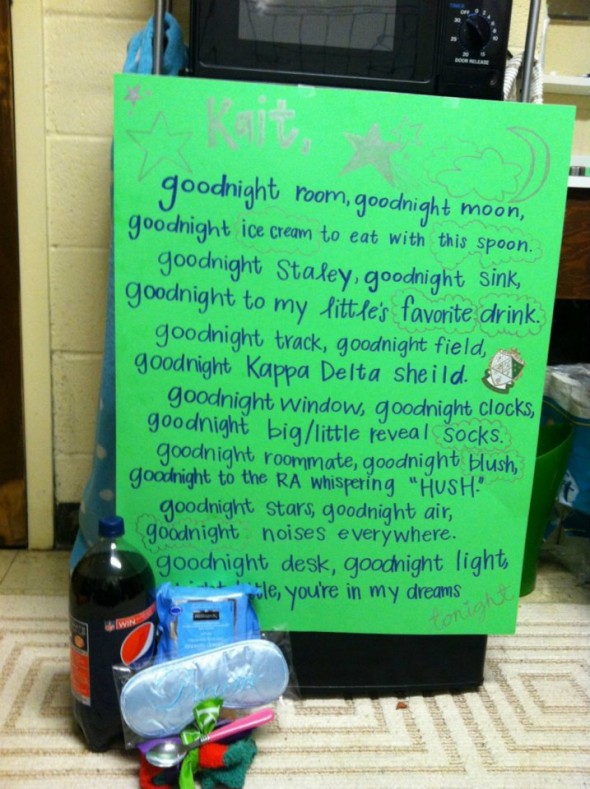 TIMER
OFF
DOOR RELEASE
Kait,
goodnight room, goodnight moon,
goodnight ice cream to eat with this spoon.
goodnight Staley, goodnight sink,
goodnight to my little's favorite drink.
goodnight track, goodnight field,
goodnight Kappa Delta sheild.
goodnight window, goodnight clocks,
goodnight big/little reveal socks.
goodnight roommate, goodnight blush,
goodnight to the RA whispering "HUSH."
goodnight stars, goodnight air,
goodnight noises everywhere.
goodnight desk, goodnight light,
you're in my dreams
tonight
WIN